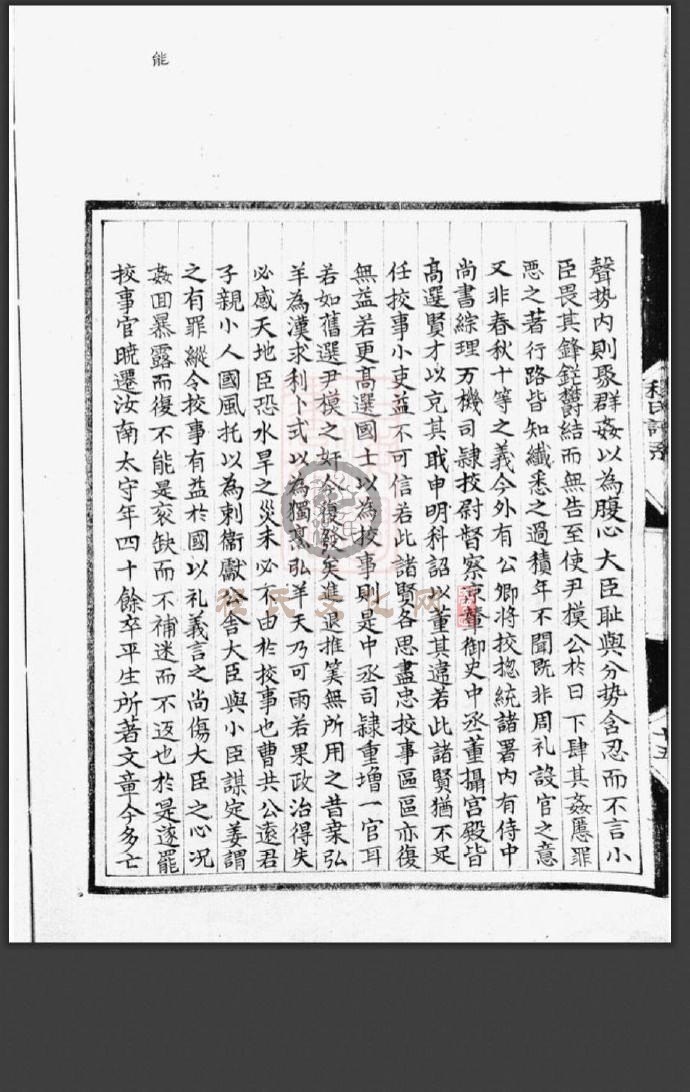 聲势内則聚群姦以為腹心大臣耻與分势含忍而不言小
臣畏其鋒鋩欝結而無告至使尹模公於日下肆其姦慝罪
惡之著行路皆知纖悉之過積年不聞既非周礼設官之意
又非春秋十等之義今外有公卿將挍揔統諸署内有侍中
尚書綜理万機司隷挍尉督察京輦御史中丞董攝宫殿皆
髙選賢才以充其職申明科詔以董其違若此諸賢猶不足
任挍事小吏益不可信若此諸賢各思盡忠挍事區區亦復
無益若更髙選國士以為挍事則是中丞司隷重增一官耳
若如舊選尹模之奸今復發矣進退推筭無所用之昔桒弘
羊為漢求利卜式以為獨烹弘羊天乃可雨若果政治得失
必感天地臣恐水旱之災未必不由於挍事也曹共公遠君
子親小人國風托以為刺衞獻公舍大臣與小臣謀定姜謂
之有罪縱令挍事有益於國以礼義言之尚傷大臣之心况
姦回暴露而復不能是衮缺而不補迷而不返也於是遂罷
挍事官曉遷汝南太守年四十餘卒平生所著文章今多亡
能
程氏文化网
十五